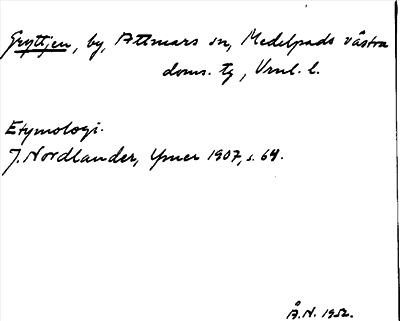 Gryttjen, by, Attmars sn, Medelpads västra
doms. tg, Vnrl. l.
Etymologi.
J. Nordlander, Ymer 1907, s. 64.
Å.N. 1952.